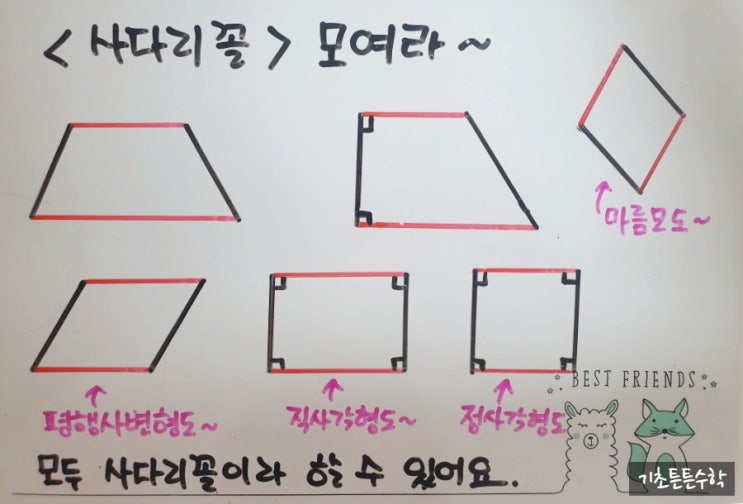 <사다리꼴> 모여라~
마름모도~
평행사변형도~ 직사각형도~ 정사각형도
BEST FRIENDS
모두 사다리꼴이라 할 수 있어요.
기초튼튼수학